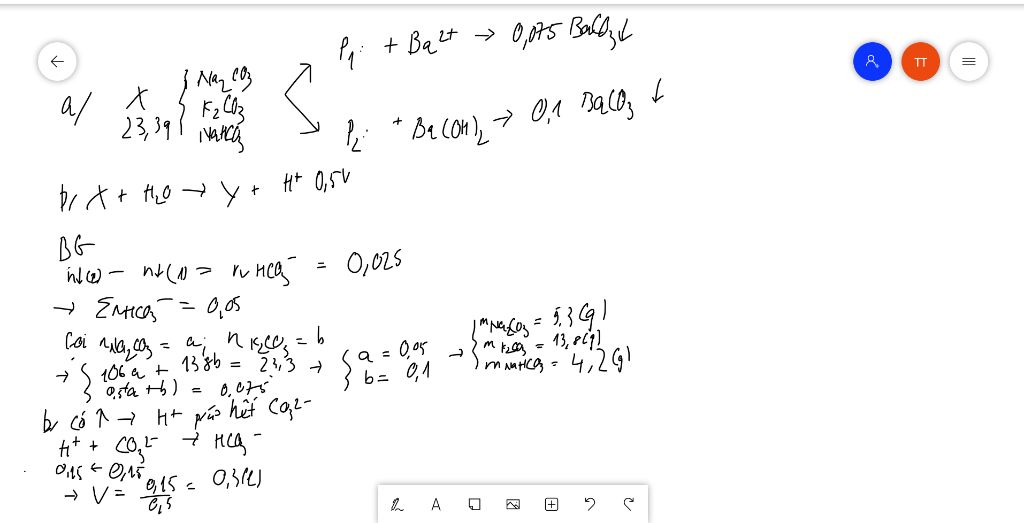 P₁: + Ba²⁺ → 0,075 BaCO₃↓
a/ X 23,3g { Na₂CO₃ K₂CO₃ NaHCO₃
P₂: + Ba(OH)₂ → 0,1 BaCO₃ ↓
b, X + H₂O → Y + H⁺ 0,5V
BG
n↓(2) - n↓(1) = n HCO₃⁻ = 0,025
→ ΣnHCO₃⁻ = 0,05
Gọi nNa₂CO₃ = a; n K₂CO₃ = b
→ { 106a + 138b = 23,3
0,5(a+b) = 0,075
→ { a = 0,05
b = 0,1
→ { mNa₂CO₃ = 5,3(g)
m K₂CO₃ = 13,8(g)
m NaHCO₃ = 4,2(g)
b, có ↑ → H⁺ pứ hết CO₃²⁻
H⁺ + CO₃²⁻ → HCO₃⁻
0,15 ← 0,15
→ V = 0,15/0,5 = 0,3(l)
TT
A